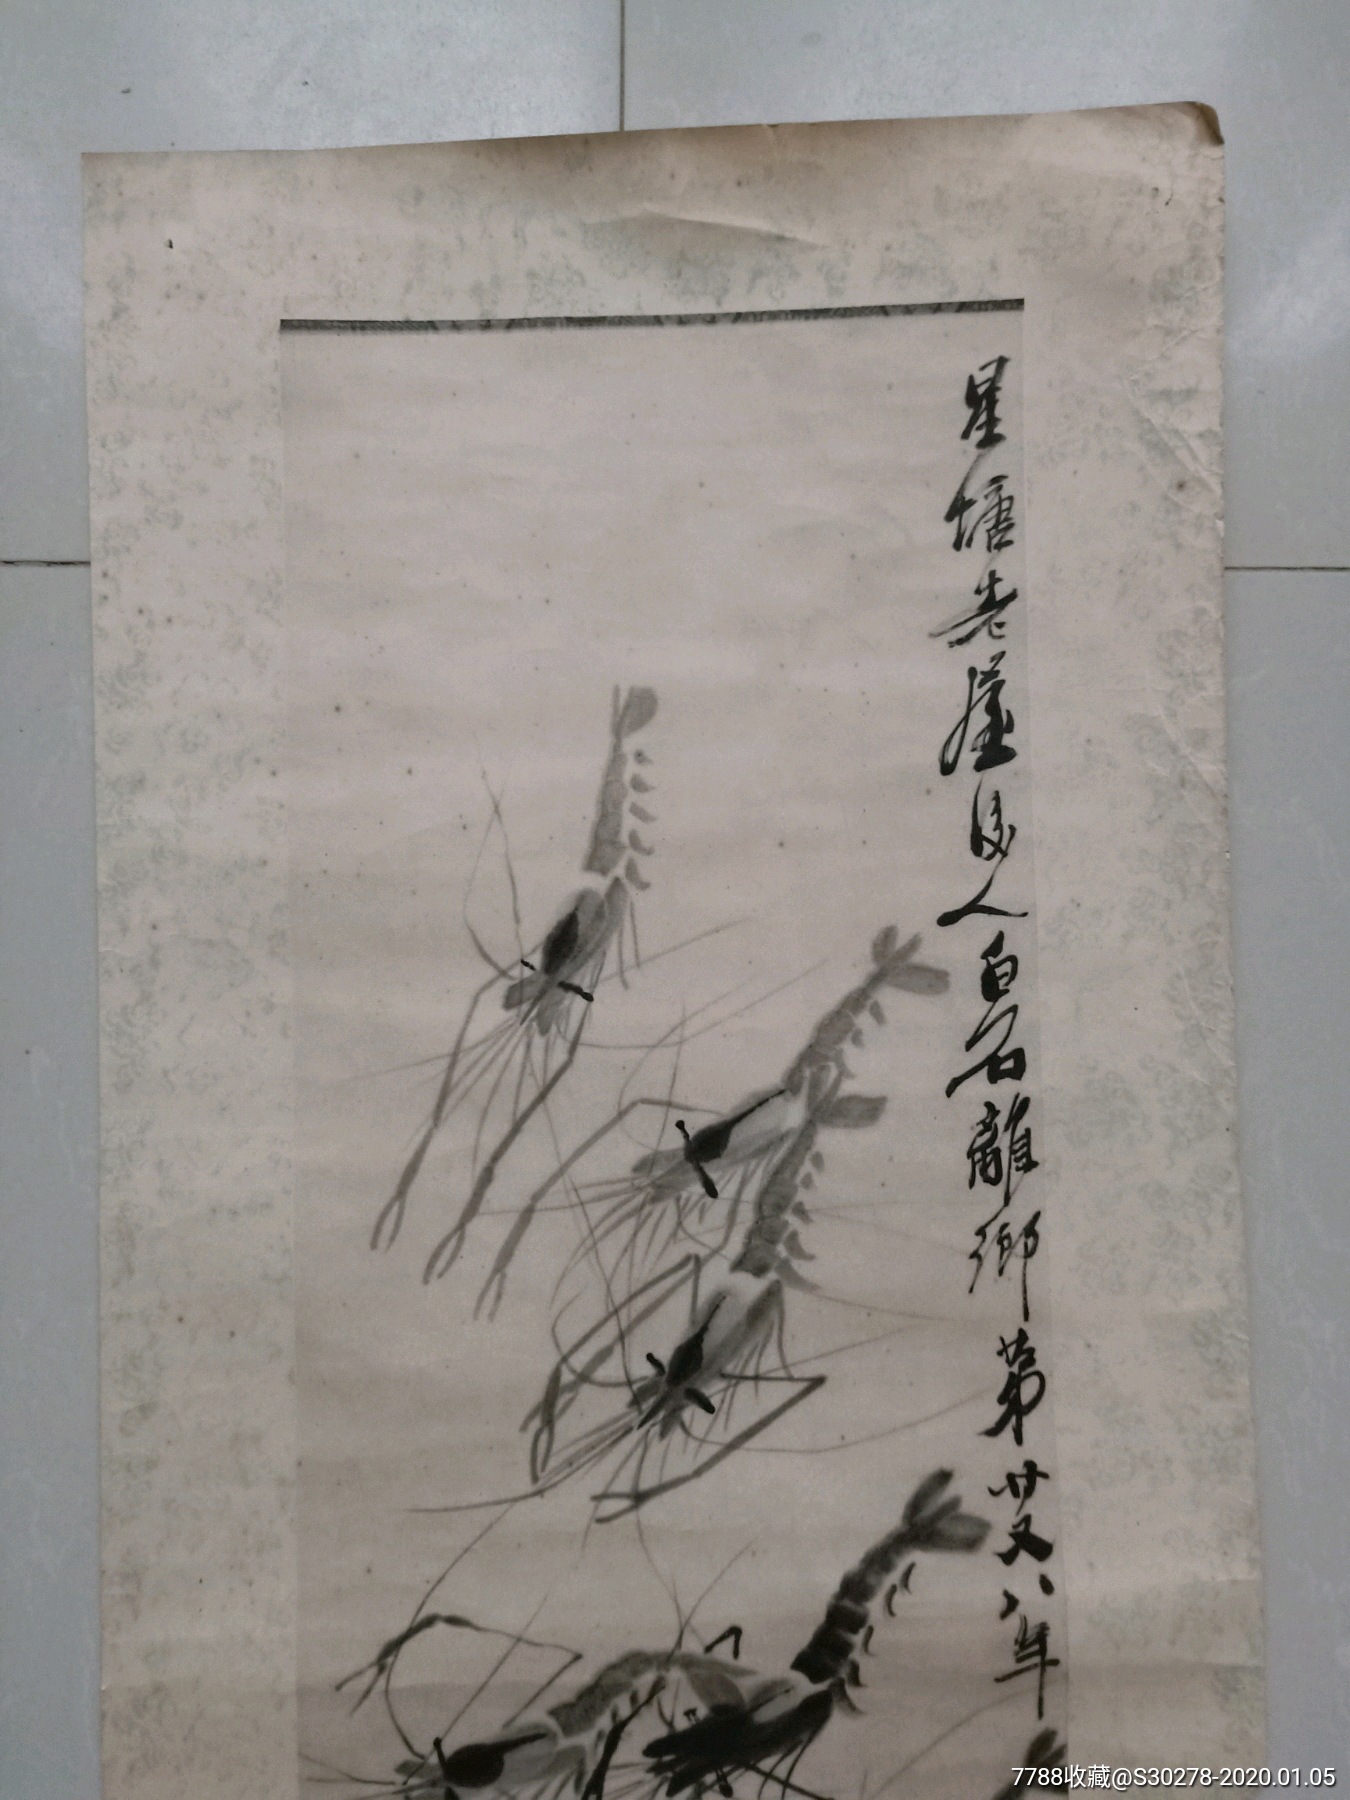 星塘老屋後人白石離鄉第廿又八年
7788收藏@S30278-2020.01.05